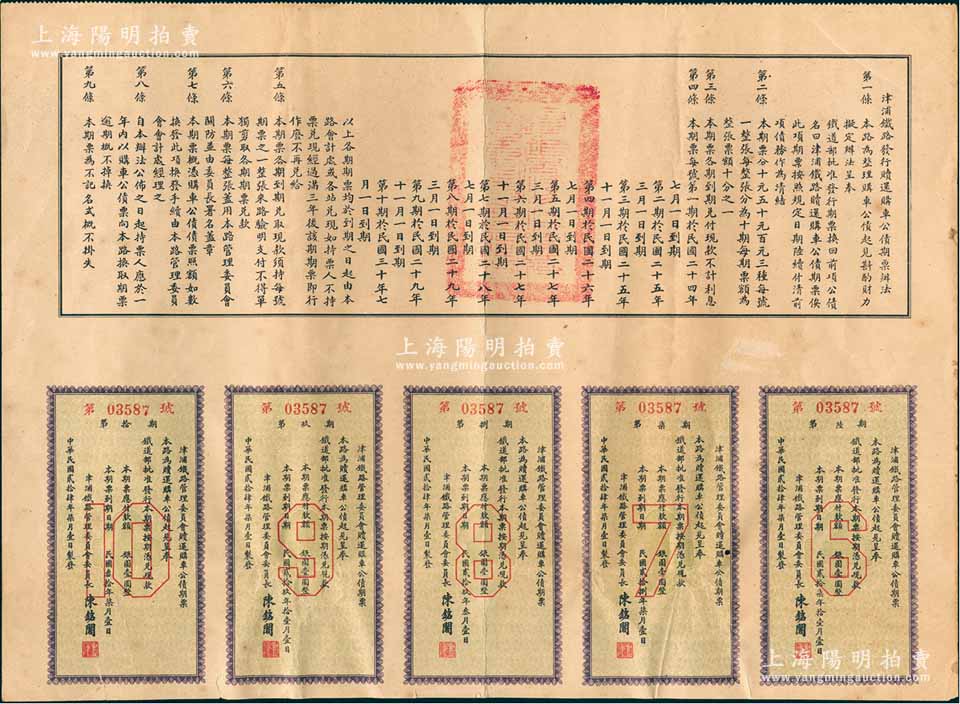 上海陽明拍賣
www.yangmingauction.com
津浦鐵路發行贖還購車公債期票辦法
第一條 本路為整理購車公債起見斟酌財力
擬定辦法呈奉
鐵道部批准發行期票換回前項公債
名曰津浦鐵路贖還購車公債期票俟
此項期票按照規定日期陸續付清前
項債務作為清結
第二條 本期票分十元五十元百元三種每號
一整張每整張分為十期每期票額為
整張票額十分之一
第三條 本期票各期到期兌付現款不計利息
第四條 本期票每號第一期於民國二十四年
七月一日到期
第二期於民國二十五年
三月一日到期
第三期於民國二十五年
十一月一日到期
第四期於民國二十六年
七月一日到期
第五期於民國二十七年
三月一日到期
第六期於民國二十七年
十一月一日到期
第七期於民國二十八年
七月一日到期
第八期於民國二十九年
三月一日到期
第九期於民國二十九年
十一月一日到期
第十期於民國三十年七
月一日到期
以上各期期票均於到期之日起由本
路會計處或各站兌現如持票人不持
票兌現經過滿三年後該期期票即行
作廢不再兌給
第五條 本期票各期到期兌取現款須持每號
期票之一整張來路驗明支付不得單
獨剪取各期期票兌款
第六條 本期票每整張蓋用本路管理委員會
關防並由委員長署名蓋章
第七條 本期票概憑購車公債債票照額如數
換發此項換發手續由本路管理委員
會會計處經理之
第八條 自本辦法公佈之日起持票人應於一
年內以購車公債票向本路換取期票
逾期概不掉換
第九條 本期票為不記名式概不掛失
上海陽明拍賣
www.yangmingauction.com
第 03587 號
第陸期
津浦鐵路管理委員會贖還購車公債期票
本路為贖還購車公債起見呈奉
鐵道部批准發行本期票按期憑兌現款
本期票應付款額 銀圓壹圓整
本期票到期日期 民國貳拾柒年拾壹月壹日
津浦鐵路管理委員會委員長 陳銘閣
中華民國貳拾肆年柒月壹日製發
6
第 03587 號
第柒期
津浦鐵路管理委員會贖還購車公債期票
本路為贖還購車公債起見呈奉
鐵道部批准發行本期票按期憑兌現款
本期票應付款額 銀圓壹圓整
本期票到期日期 民國貳拾捌年柒月壹日
津浦鐵路管理委員會委員長 陳銘閣
中華民國貳拾肆年柒月壹日製發
7
第 03587 號
第捌期
津浦鐵路管理委員會贖還購車公債期票
本路為贖還購車公債起見呈奉
鐵道部批准發行本期票按期憑兌現款
本期票應付款額 銀圓壹圓整
本期票到期日期 民國貳拾玖年叁月壹日
津浦鐵路管理委員會委員長 陳銘閣
中華民國貳拾肆年柒月壹日製發
8
第 03587 號
第玖期
津浦鐵路管理委員會贖還購車公債期票
本路為贖還購車公債起見呈奉
鐵道部批准發行本期票按期憑兌現款
本期票應付款額 銀圓壹圓整
本期票到期日期 民國貳拾玖年拾壹月壹日
津浦鐵路管理委員會委員長 陳銘閣
中華民國貳拾肆年柒月壹日製發
9
第 03587 號
第拾期
津浦鐵路管理委員會贖還購車公債期票
本路為贖還購車公債起見呈奉
鐵道部批准發行本期票按期憑兌現款
本期票應付款額 銀圓壹圓整
本期票到期日期 民國叁拾年柒月壹日
津浦鐵路管理委員會委員長 陳銘閣
中華民國貳拾肆年柒月壹日製發
10
上海陽明拍賣
www.yangmingauction.com